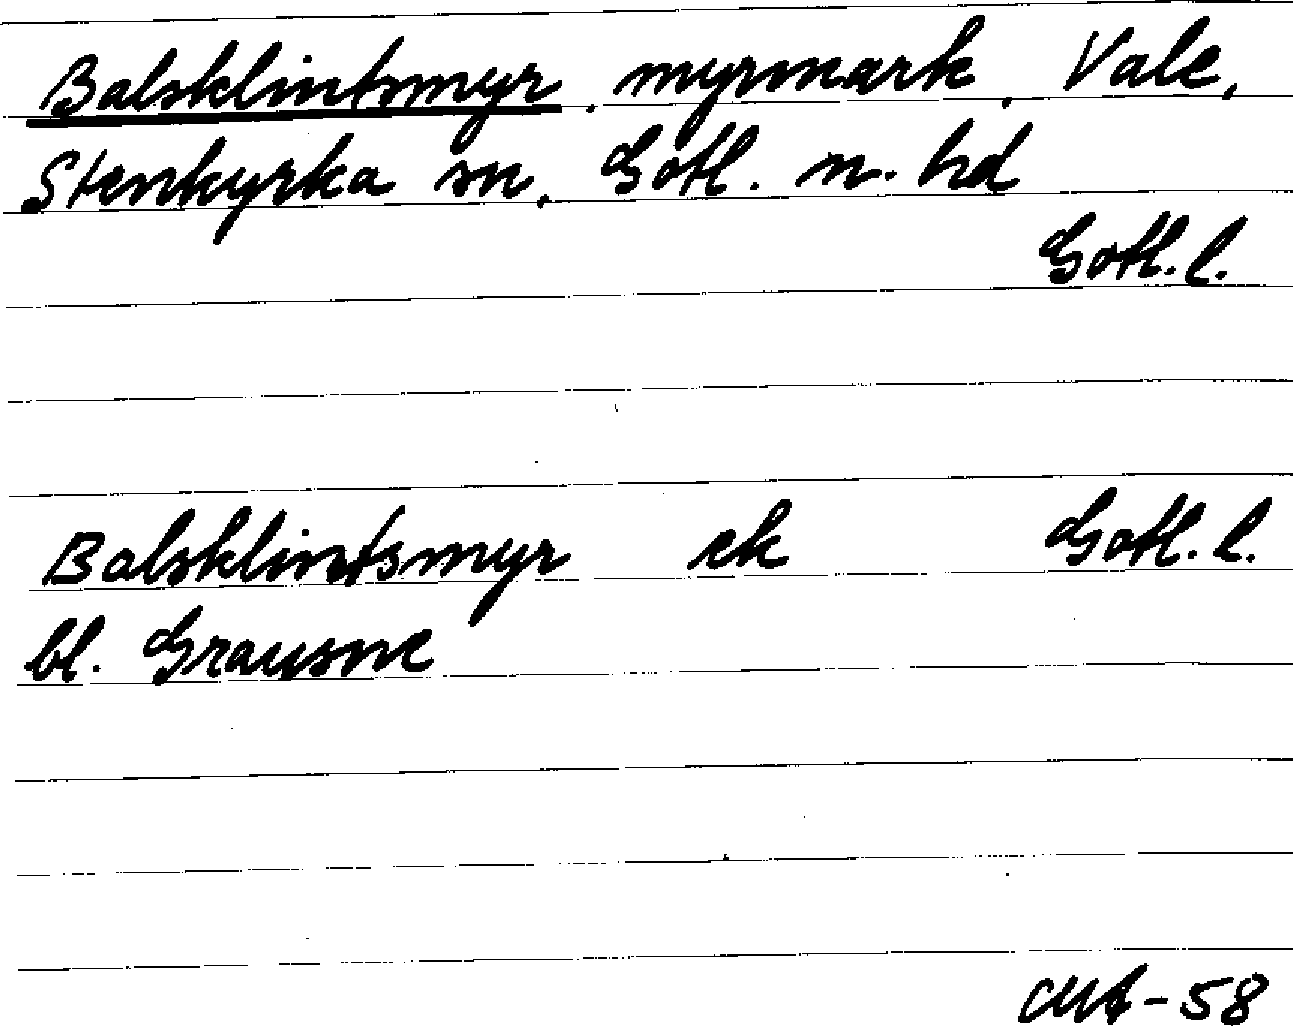 Balsklintsmyr, myrmark, Vale,
Stenkyrka sn, Gotl. n. hd
Gotl. l.
Balsklintsmyr ek Gotl. l.
bl. Grausne
-58